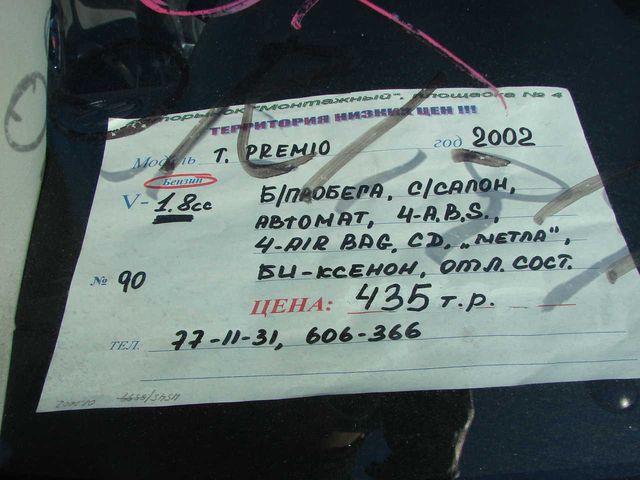 Авторынок "Монтажный", площадка № 4
ТЕРРИТОРИЯ НИЗКИХ ЦЕН !!!
Модель T. PREMIO год 2002
Бензин
V- 1.8cc
Б/ПРОБЕГА, С/САЛОН,
АВТОМАТ, 4-A.B.S.,
4-AIR BAG, CD, „МЕТЛА",
БИ-КСЕНОН, ОТЛ. СОСТ.
№ 90
ЦЕНА: 435 т.р.
ТЕЛ. 77-11-31, 606-366